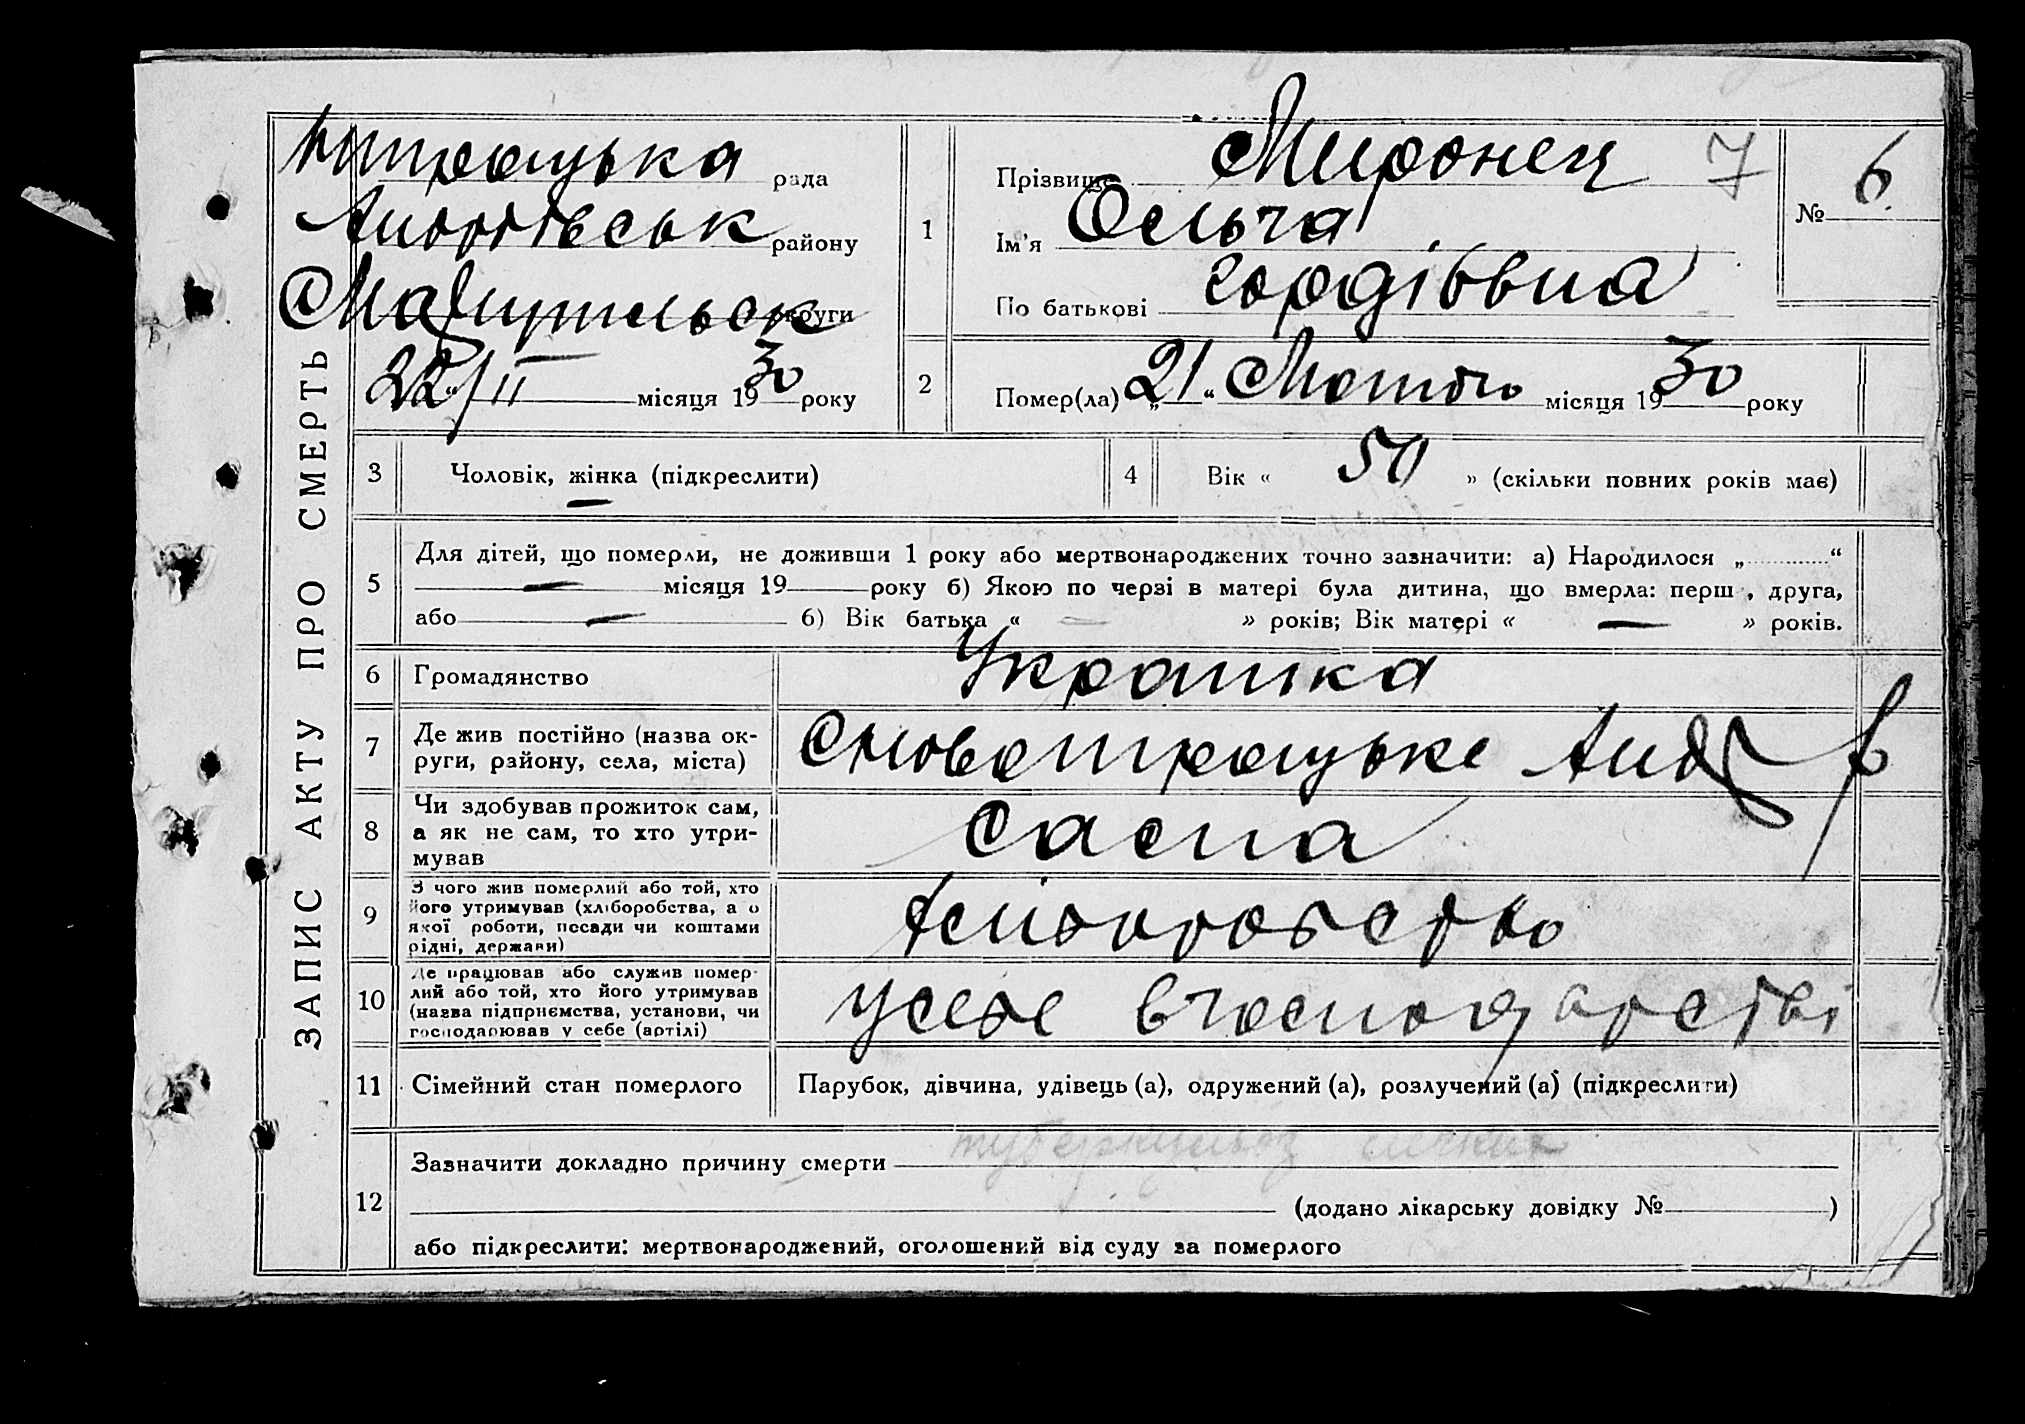 ЗАПИС АКТУ ПРО СМЕРТЬ
Н/троцька рада
Андріївськ району
Маріупільськ округи
22/II місяця 1930 року
1
Прізвище Миронец 7
Ім’я Ольга
По батькові Гордіївна
№ 6
2
Помер(ла) „21“ Лютого місяця 1930 року
3 Чоловік, жінка (підкреслити)
4 Вік « 50 » (скільки повних років має)
5
Для дітей, що померли, не доживши 1 року або мертвонароджених точно зазначити: а) Народилося „ “
— місяця 19 року б) Якою по черзі в матері була дитина, що вмерла: перш , друга,
або — б) Вік батька « — » років; Вік матері « — » років.
6 Громадянство Украинка
7 Де жив постійно (назва ок-
руги, району, села, міста)
Новотроцьке Анд р
8 Чи здобував прожиток сам,
а як не сам, то хто утри-
мував
Сама
9 З чого жив померлий або той, хто
його утримував (хліборобства, а о
якої роботи, посади чи коштами
рідні, держави)
Хлібороб́ство
10 Де працював або служив помер-
лий або той, хто його утримував
(назва підприємства, установи, чи
господарював у себе (артілі)
у себе в господарстві
11 Сімейний стан померлого Парубок, дівчина, удівець (а), одружений (а), розлучений (а) (підкреслити)
12
Зазначити докладно причину смерти туберкульоз легких
(додано лікарську довідку № )
або підкреслити: мертвонароджений, оголошений від суду за померлого